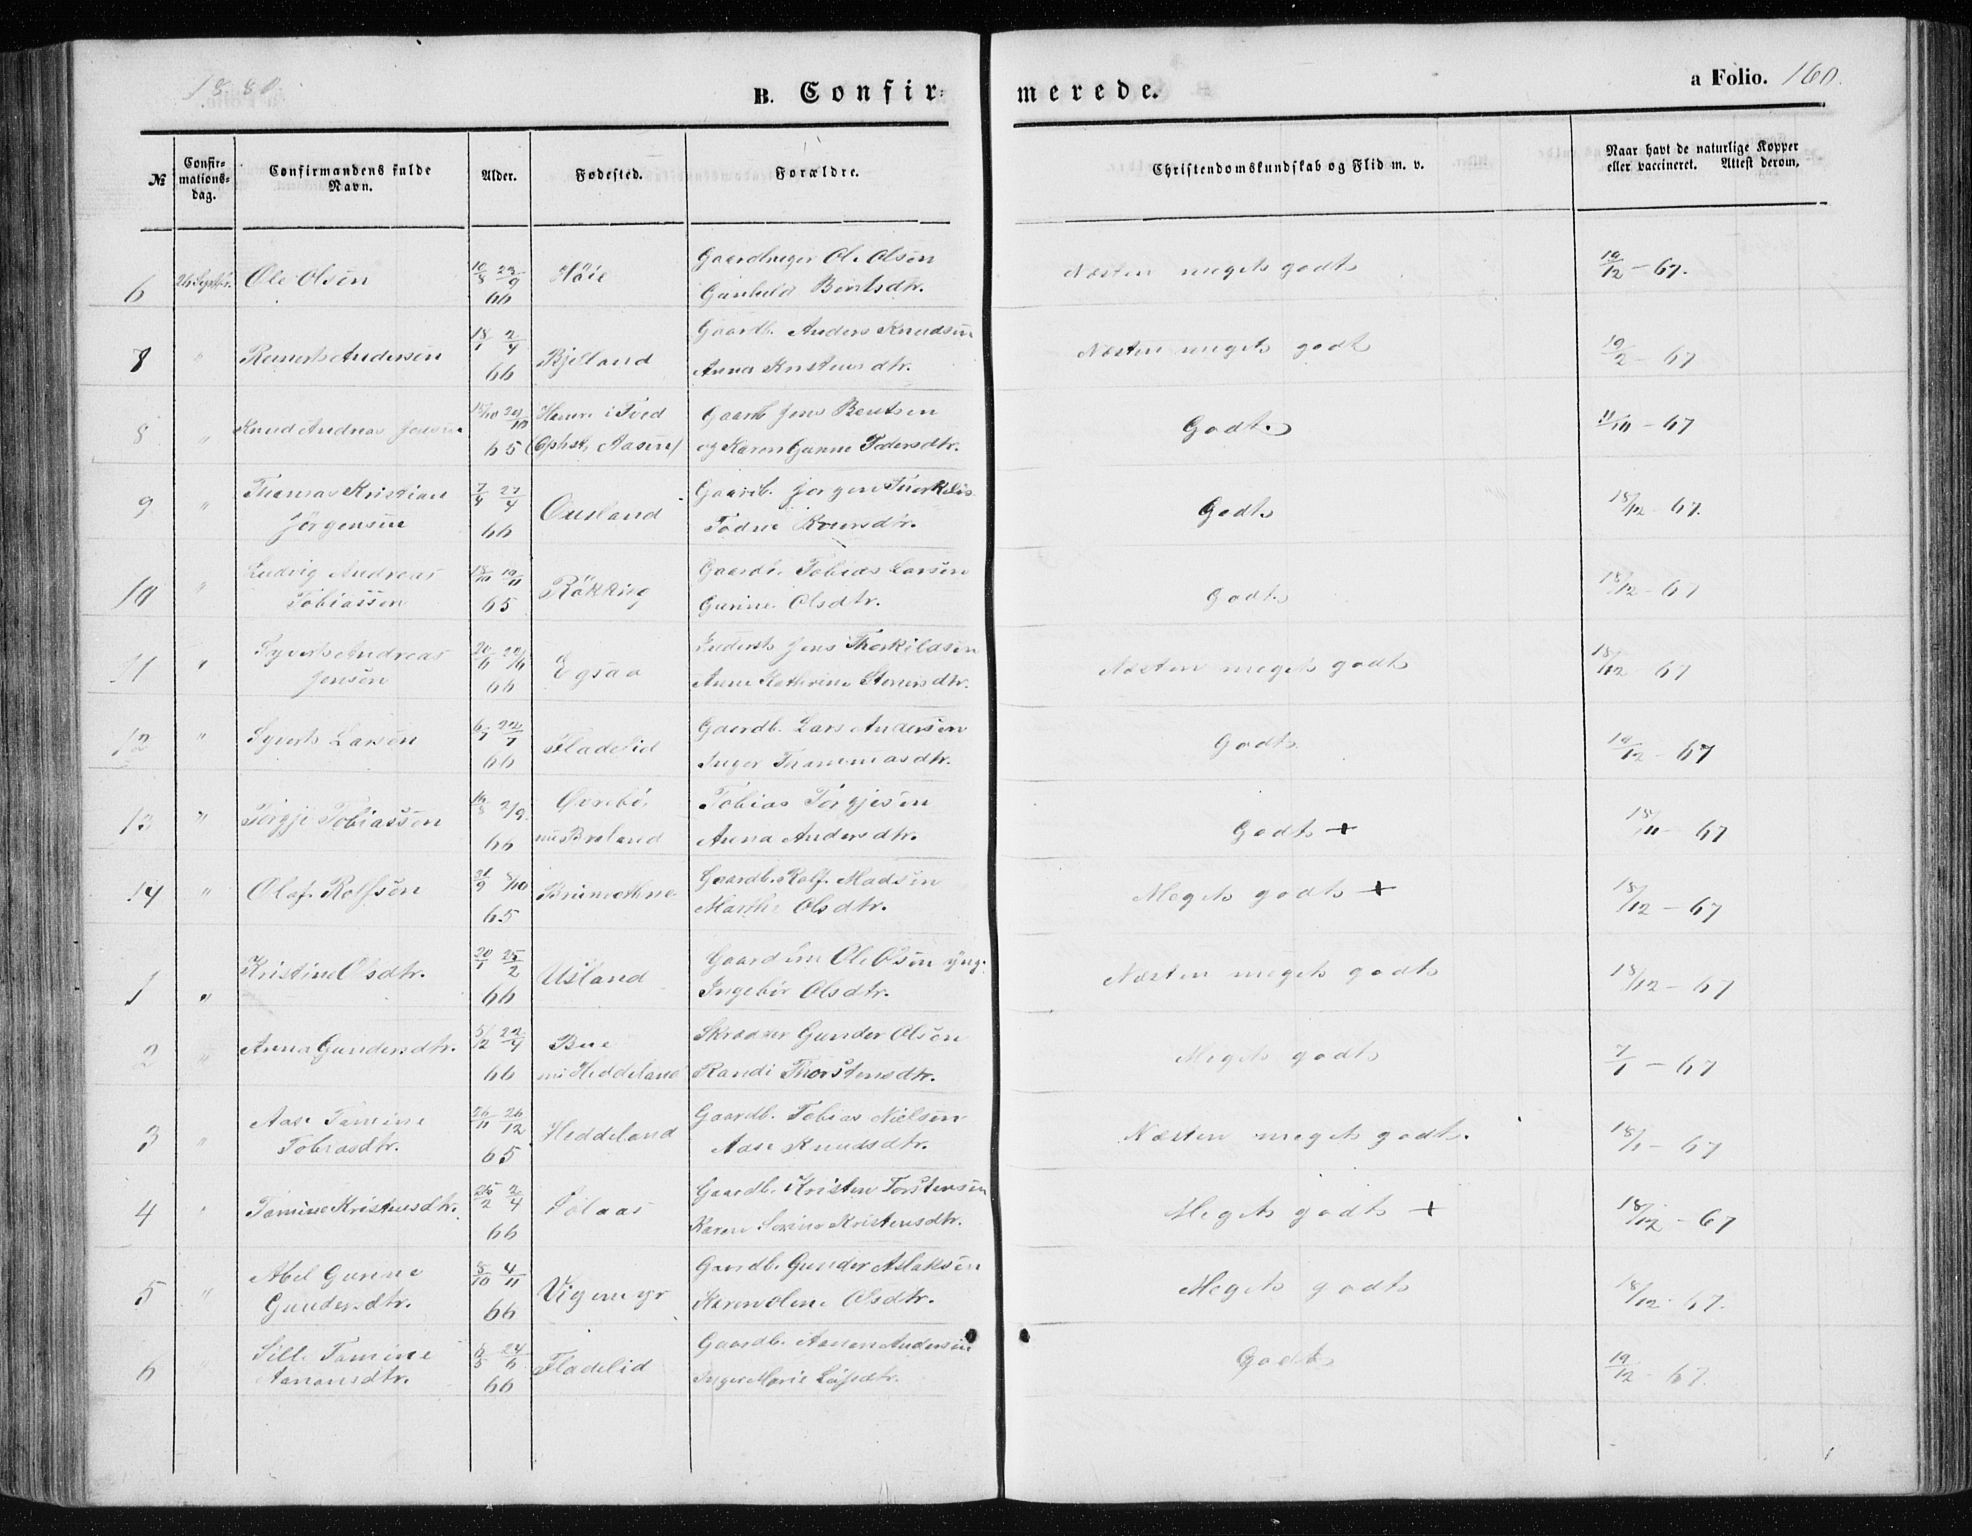 1880.
B. Confir-
merede.
a Folio. 160.
№
Confir-
mations-
dag.
Confirmandens fulde
Navn.
Alder.
Fødested.
Forældre.
Christendomskundskab og Flid m. v.
Naar havt de naturlige Kopper
eller vaccineret. Attest derom.
6 26 Septbr. Ole Olsen 23/9 66 Høie
Gaardbruger Ole Olsen
Gunhild Berntsdtr.
Næsten meget godt 19/12 - 67.
7 " Reinert Andersen 18/1 2/4 66 Bjelland
Gaardb. Anders Knudsen
Anna Kristensdtr.
Næsten meget godt 19/2 - 67
8 " Knud Andreas Jensen 65 i Tved
(Ophst. Aasene)
Gaardb. Jens Bentsen
og Karen Gunne Pedersdtr.
Godt 11/10 - 67
9 " Thomas Kristian
Jørgensen
27/4 66 Ousland
Gaardb. Jørgen Thorkels.
Godt 18/12 - 67.
10 " Ludvig Andreas
Tobiassen
18/10 19/11 65 Røkking
Gaardb. Tobias Larsen
Gurine Olsdtr.
Godt 18/12 - 67
11 " Syvert Andreas
Jensen
66 Egsaa
Inderst Jens Thorkildsen
Anne Kathrine Stenersdtr.
Næsten meget godt 18/12 67
12 " Syvert Larsen 6/7 66 Fladelid
Gaardb. Lars Andersen
Inger Thommasdtr.
Godt 19/12 - 67
13 " Tørgje Tobiassen 2/9. 66 Øvrebø
Tobias Tørgjesen
Anna Andersdtr.
Godt + 18/11 - 67
14 " Olaf Rolfsen 21/9 8/10 65
Gaardb. Rolf Madsen
Marthe Olsdtr.
Meget godt + 18/12 - 67
1 " Kristine Olsdtr. 20/1 25/2 66 Usland
Ole Olsen yng.
Ingebor Olsdtr.
Næsten meget godt 18/12 - 67
2 " Anna Gundersdtr. 66 Bue
nu Heddeland
Skrædder Gunder Olsen
Randi Thorstensdtr.
Meget godt 7/1 - 67
3 " Aase Tomine
Tobiasdtr.
26/11 26/12 65 Heddeland
Gaardb. Tobias Nielsen
Aase Knudsdtr.
Næsten meget godt. 18/1 - 67
4 " Tomine Kristensdtr. 25/2 2/4 66 Solaas
Gaardb. Kristen Torstensen
Karen Kristensdtr.
Meget godt + 18/12 - 67
5 " Abel Gurine
Gundersdtr.
8/10 4/11 66 Vigemyr
Gaardb. Gunder Aslaksen
Karen Oline Olsdtr.
Meget godt 18/12 - 67.
6 Sille Tomine
Aanonsdtr.
6/5 24/6 66 Fladelid
Gaardb. Aanon Andersen
Inger Marie
Godt 19/12 - 67.